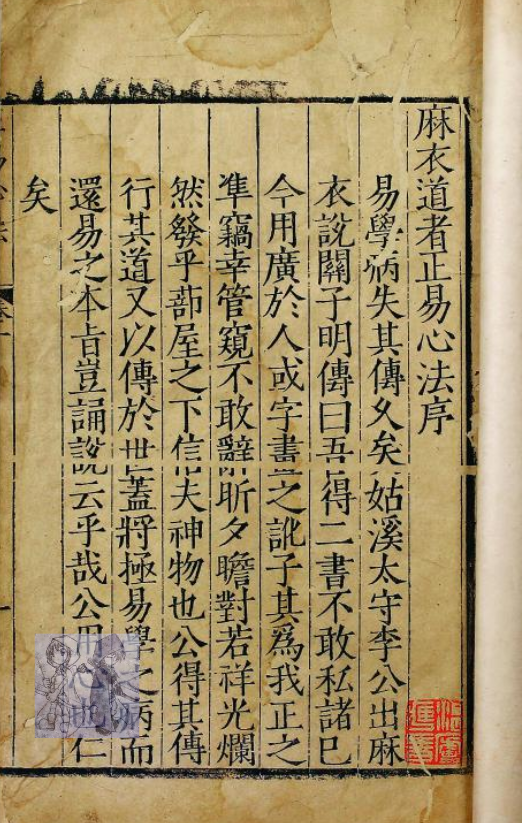 麻衣道者正易心法序
易學病失其傳久矣姑溪太守李公出麻
衣說關子明傳曰吾得二書不敢私諸已
今用廣於人或字畫之訛子其爲我正之
準竊幸管窺不敢辭昕夕瞻對若祥光爛
然發乎蔀屋之下信夫神物也公得其傳
行其道又以傳於世蓋將極易學之病而
還易之本旨豈誦說云乎哉公用心也仁
矣